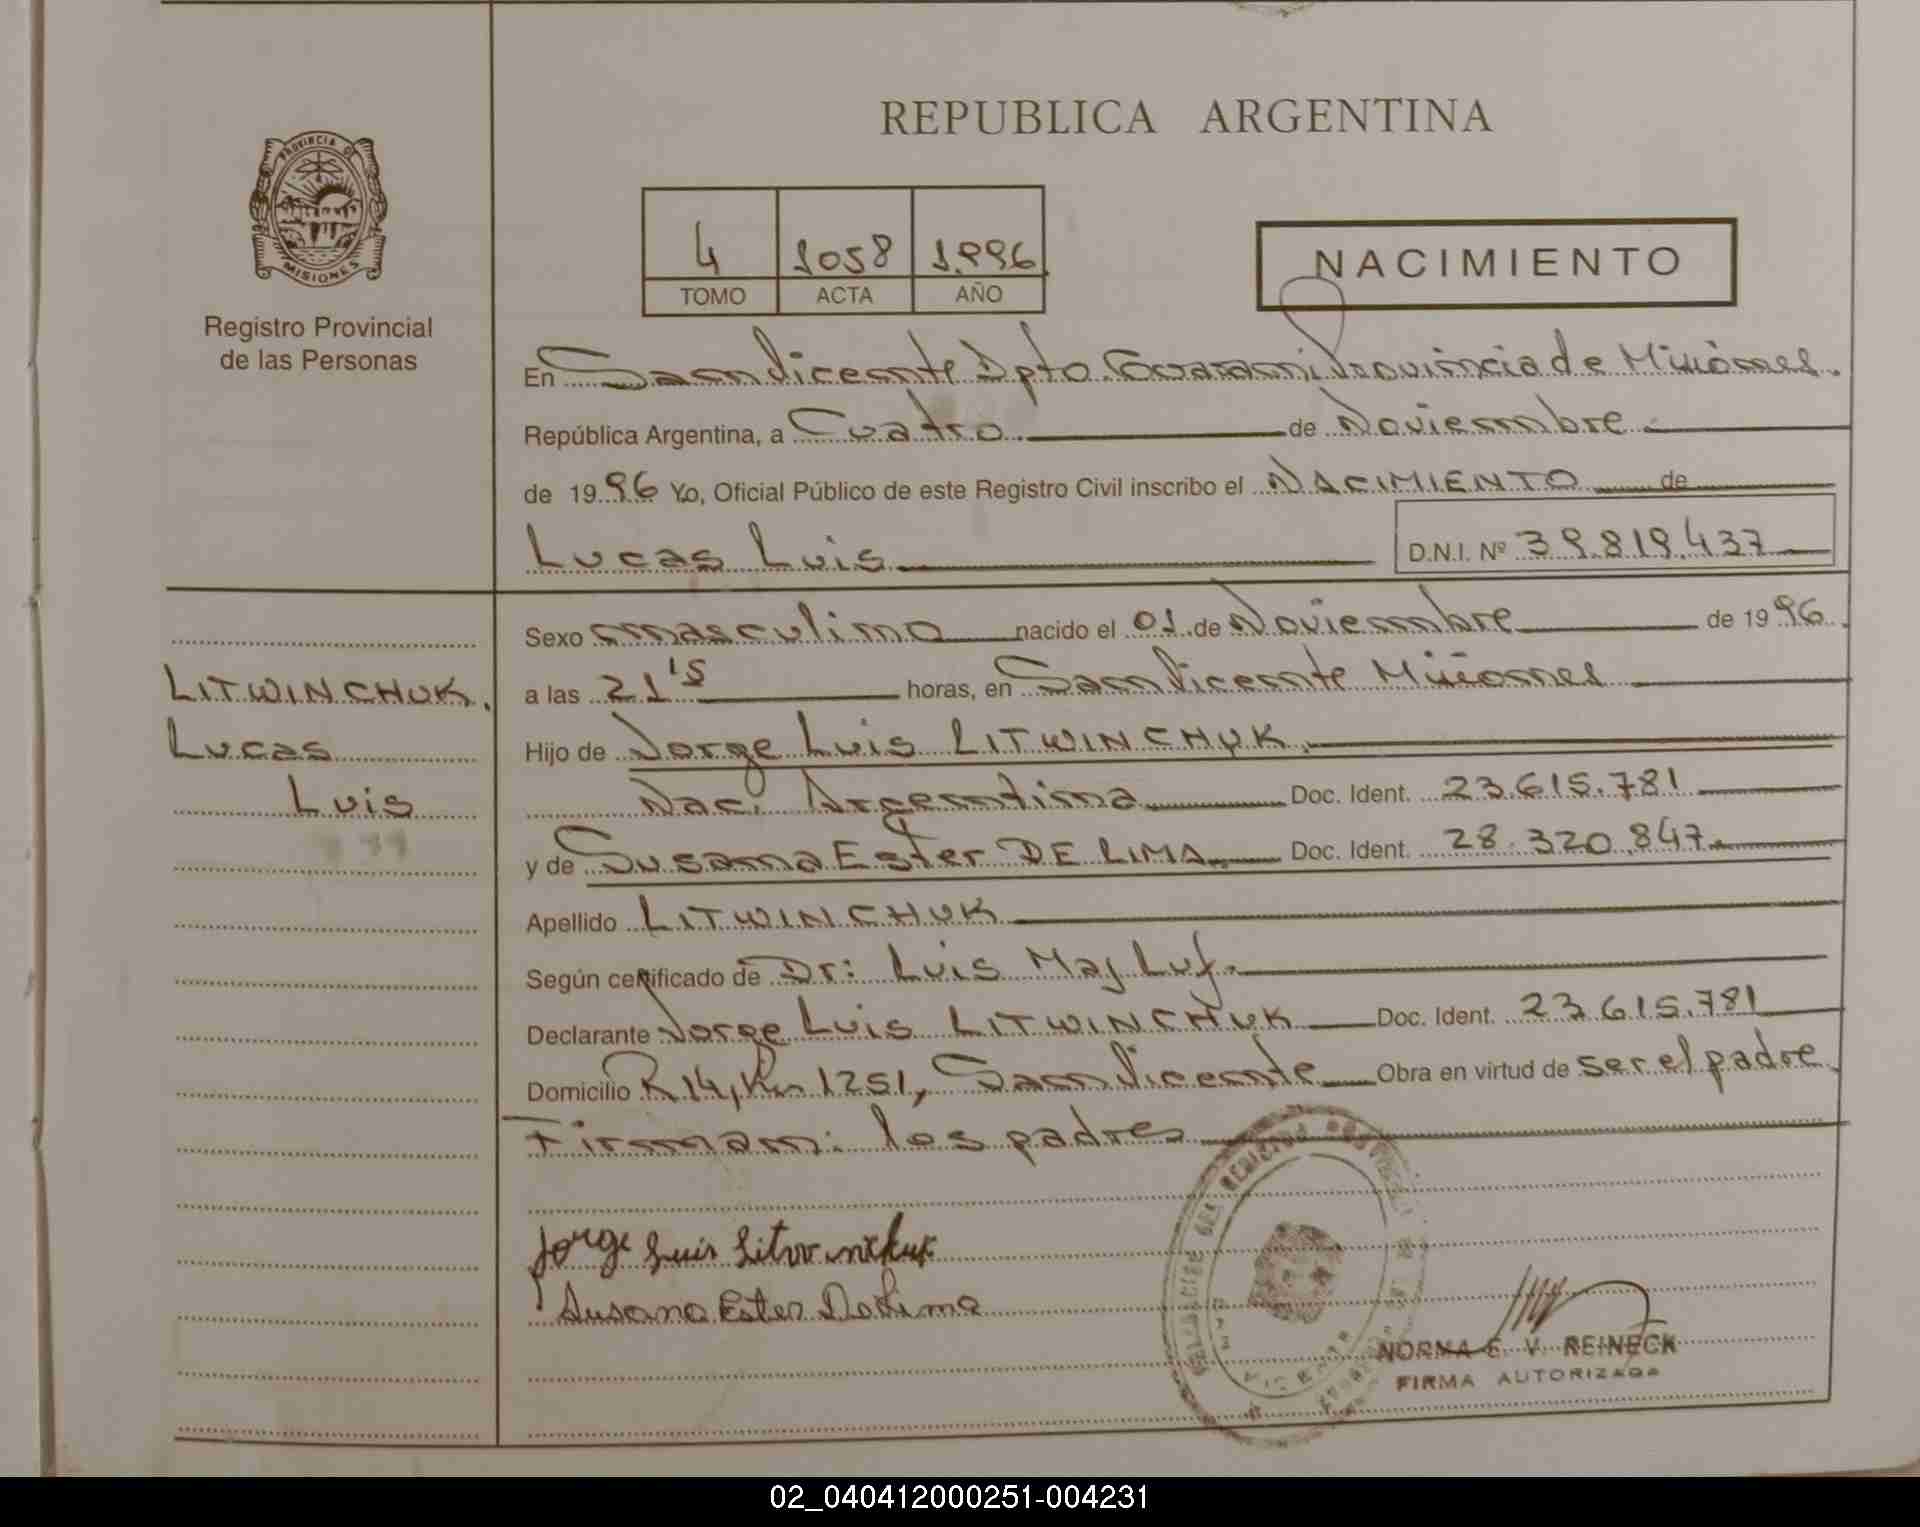 REPUBLICA ARGENTINA
PROVINCIA DE
MISIONES
Registro Provincial
de las Personas
4 1058 1.996
TOMO ACTA AÑO
NACIMIENTO
En San Vicente Dpto. Guaraní Provincia de Misiones.
República Argentina, a Cuatro. de Noviembre.
de 1996 Yo, Oficial Público de este Registro Civil inscribo el NACIMIENTO de
Lucas Luis D.N.I. Nº 39.819.437
LITWINCHUK.
Lucas
Luis
Sexo masculino nacido el 01 de Noviembre de 1996.
a las 21'5 horas, en San Vicente Misiones
Hijo de Jorge Luis LITWINCHUK.
Nac. Argentina Doc. Ident. 23.615.781
y de Susana Ester DE LIMA. Doc. Ident. 28.320.847.
Apellido LITWINCHUK
Según certificado de Dr: Luis Maj Luf.
Declarante Jorge Luis LITWINCHUK Doc. Ident. 23.615.781
Domicilio R 14, Km 1251, San Vicente Obra en virtud de ser el padre.
Firman: los padres
Jorge Luis Litwinchuk
Susana Ester De Lima
NORMA E. V. REINECK
FIRMA AUTORIZADA
02_040412000251-004231